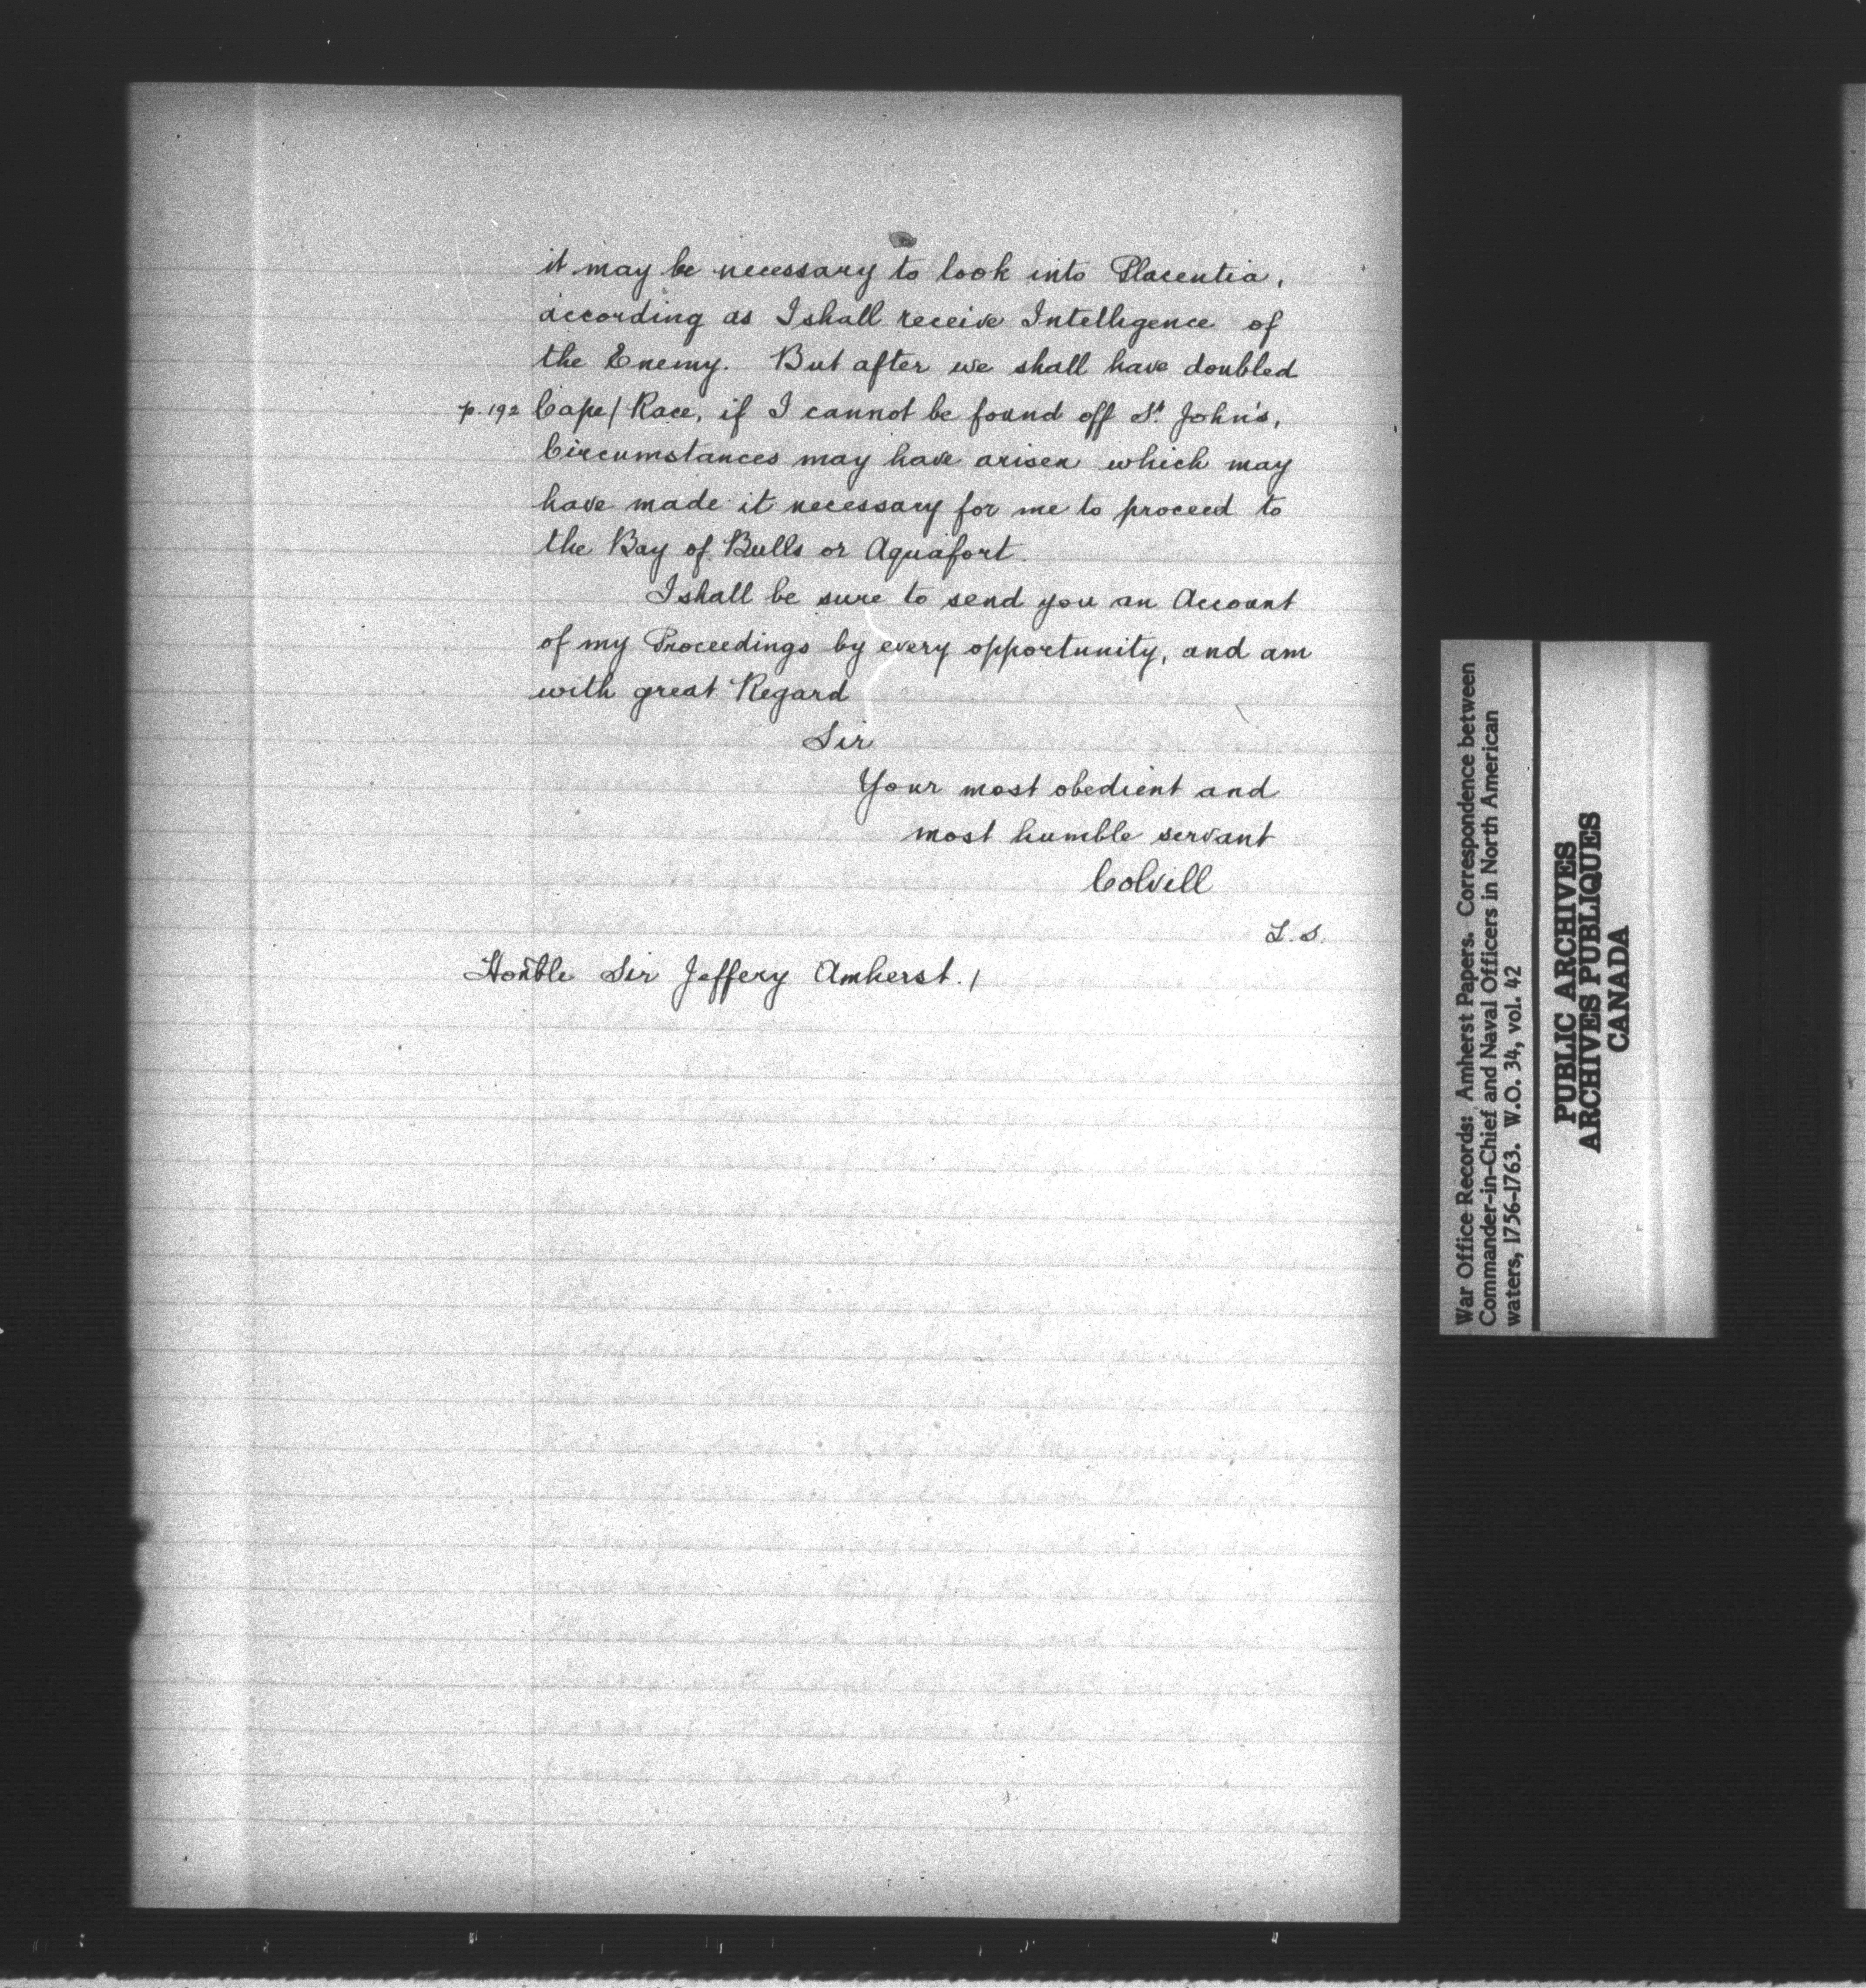 it may be necessary to look into Placentia,
according as I shall receive Intelligence of
the Enemy. But after we shall have doubled
p. 192 Cape/ Race, if I cannot be found off St. John's,
Circumstances may have arisen which may
have made it necessary for me to proceed to
the Bay of Bulls or Aquafort.
I shall be sure to send you an Account
of my Proceedings by every opportunity, and am
with great Regard
Sir
Your most obedient and
most humble servant
Colvill
L.S.
Honble Sir Jeffery Amherst./
War Office Records: Amherst Papers. Correspondence between
Commander-in-Chief and Naval Officers in North American
waters, 1756-1763. W.O. 34, vol. 42
PUBLIC ARCHIVES
ARCHIVES PUBLIQUES
CANADA